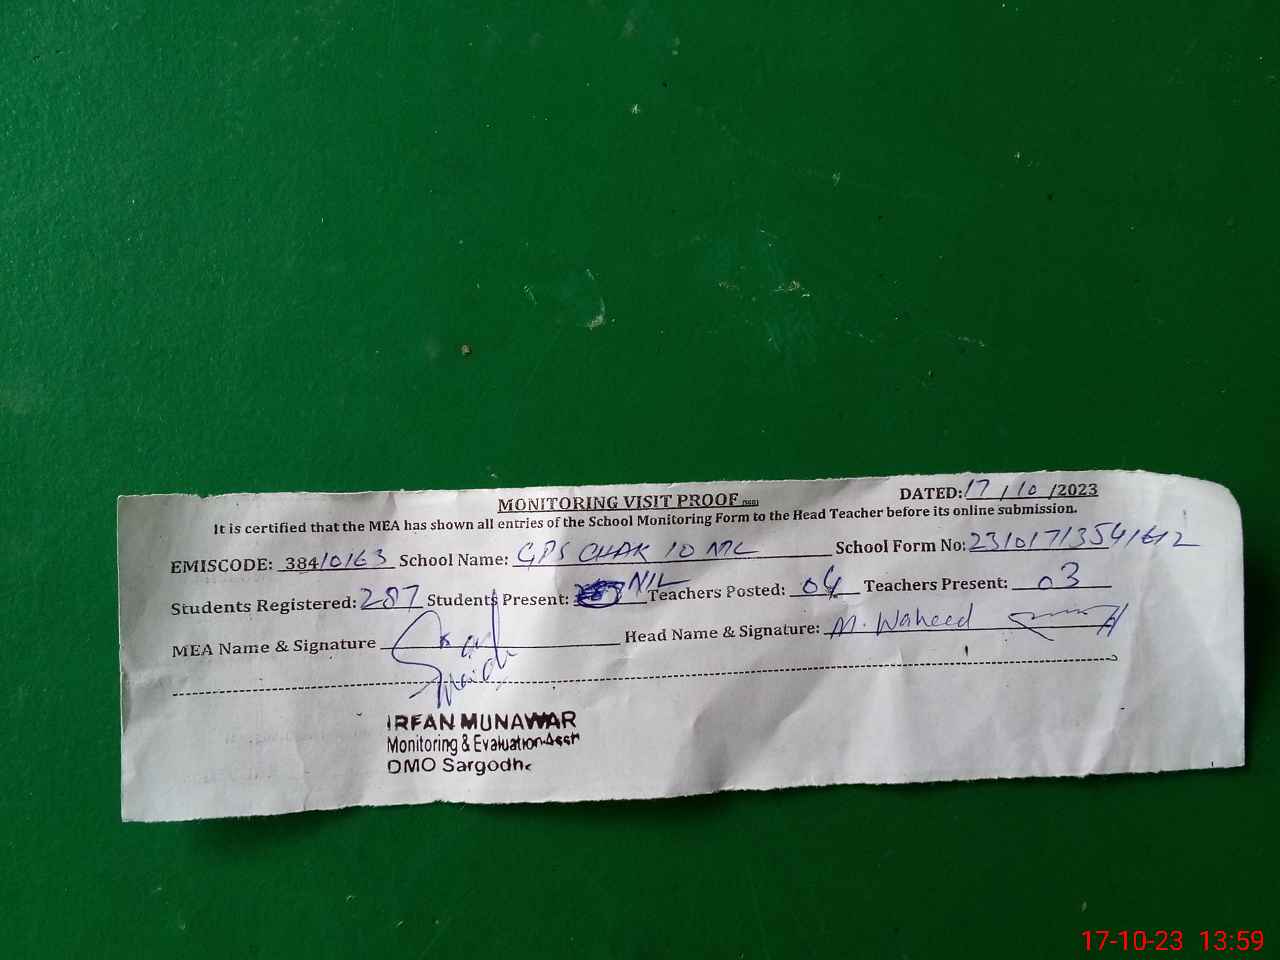 MONITORING VISIT PROOF
DATED: 17/10/2023
It is certified that the MEA has shown all entries of the School Monitoring Form to the Head Teacher before its online submission.
EMISCODE: 38410163 School Name: GPS CHAK 10 ML School Form No:
Students Registered: 287 Students Present: NIL Teachers Posted: 04 Teachers Present: 03
MEA Name & Signature Head Name & Signature: M. Waheed
IRFAN MUNAWAR
Monitoring & Evaluation Asstt
DMO Sargodha
17-10-23 13:59